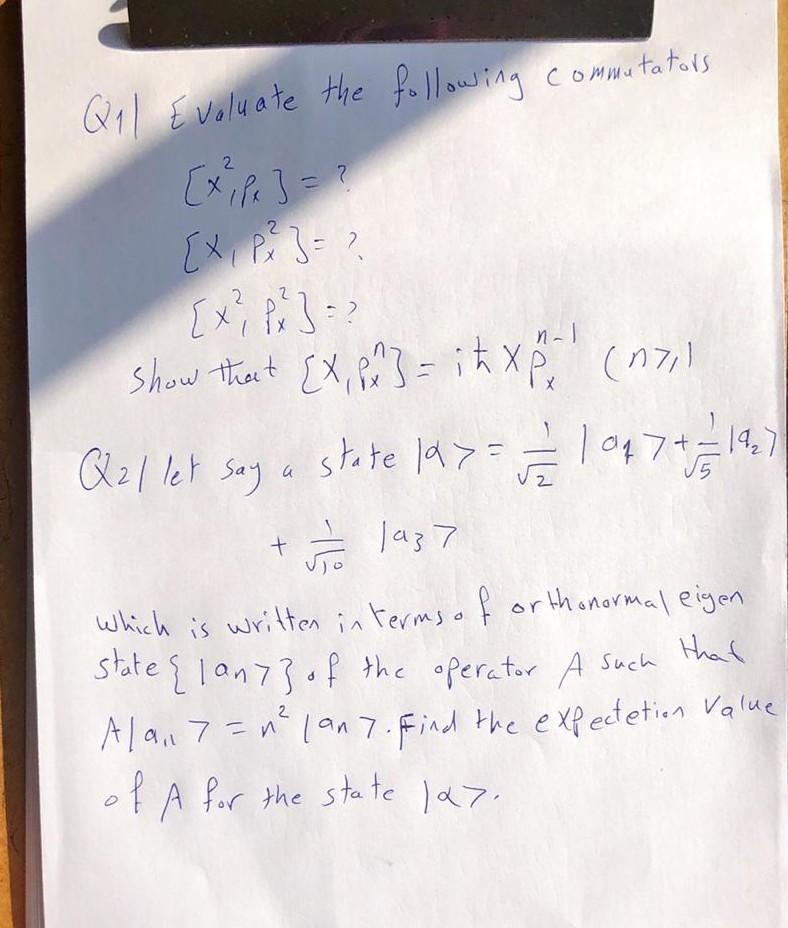 Q1| Evaluate the following commutators
[x²,Pₓ] = ?
[x, Pₓ²] = ?
[x², Pₓ²] = ?
show that [x, Pₓⁿ] = iħ x Pₓⁿ⁻¹ (n⩾1
Q2| let say a state |α> = 1/√2 |a1> + 1/√5 |a₂>
+ 1/√10 |a3>
which is written in terms of orthonormal eigen
state {|an>} of the operator A such that
A|an> = n² |an>. Find the expectetion value
of A for the state |α>.